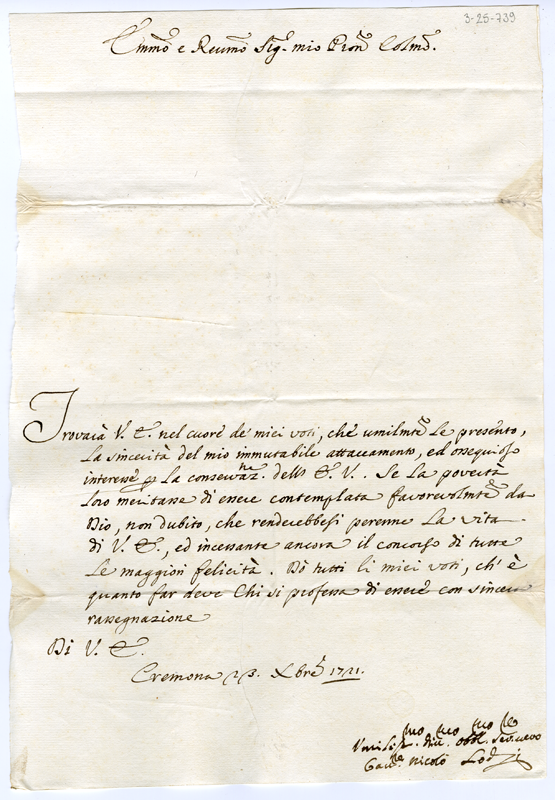 3-25-739
Emmõ e Reumõ Sig.r mio Prõn Colmõ.
Trovarà V. E. nel cuore de miei voti, che umilmte Le presento,
La sincerità del mio immutabile attaccamento, ed ossequioso
interesse p La conservaz.ne dell' E. V. Se La povertà
loro meritasse di essere contemplata favorevolmte da
Dio, non dubito, che renderebbesi perenne La vita
di V. E., ed incessante ancora il concorso di tutte
Le maggiori felicità. Dò tutti li miei voti, ch' è
quanto far deve Chi si professa di essere con sincera
rassegnazione
Di V. E.
Cremona 23. Xbre 1721.
Umiliss.mo div.mo obbl.mo Ser.re vero
Nicolò Lodi